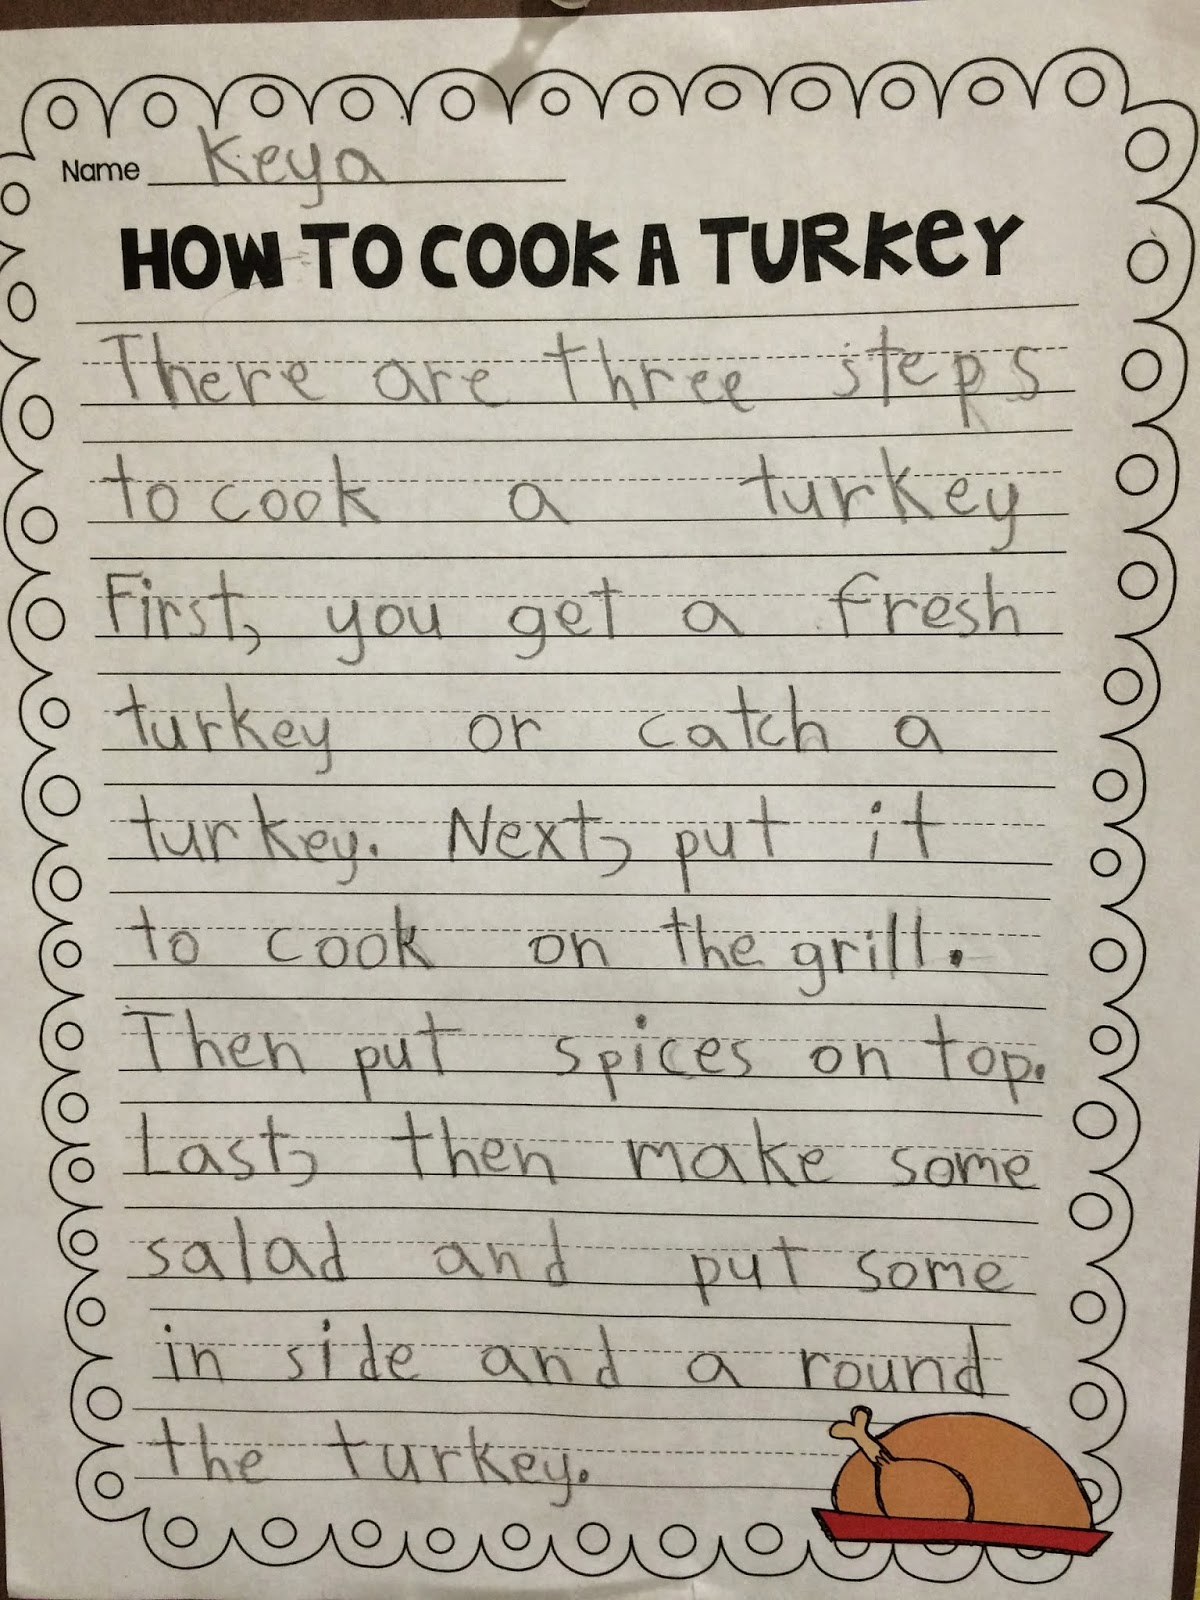 Name Keya
HOW TO COOK A TURKEY
There are three steps
to cook a turkey
First, you get a fresh
turkey or catch a
turkey. Next, put it
to cook on the grill.
Then put spices on top.
Last, then make some
salad and put some
in side and a round
the turkey.